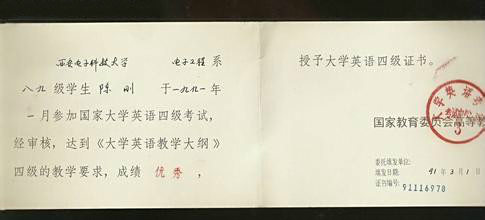 西安电子科技大学 电子工程 系
八九 级学生 陈刚 于一九九一年
一月参加国家大学英语四级考试，
经审核，达到《大学英语教学大纲》
四级的教学要求，成绩 优秀 ，
授予大学英语四级证书。
国家教育委员会高等教
委托填发单位:
填发日期: 91 年 3 月 1 日
证书编号: 91116978